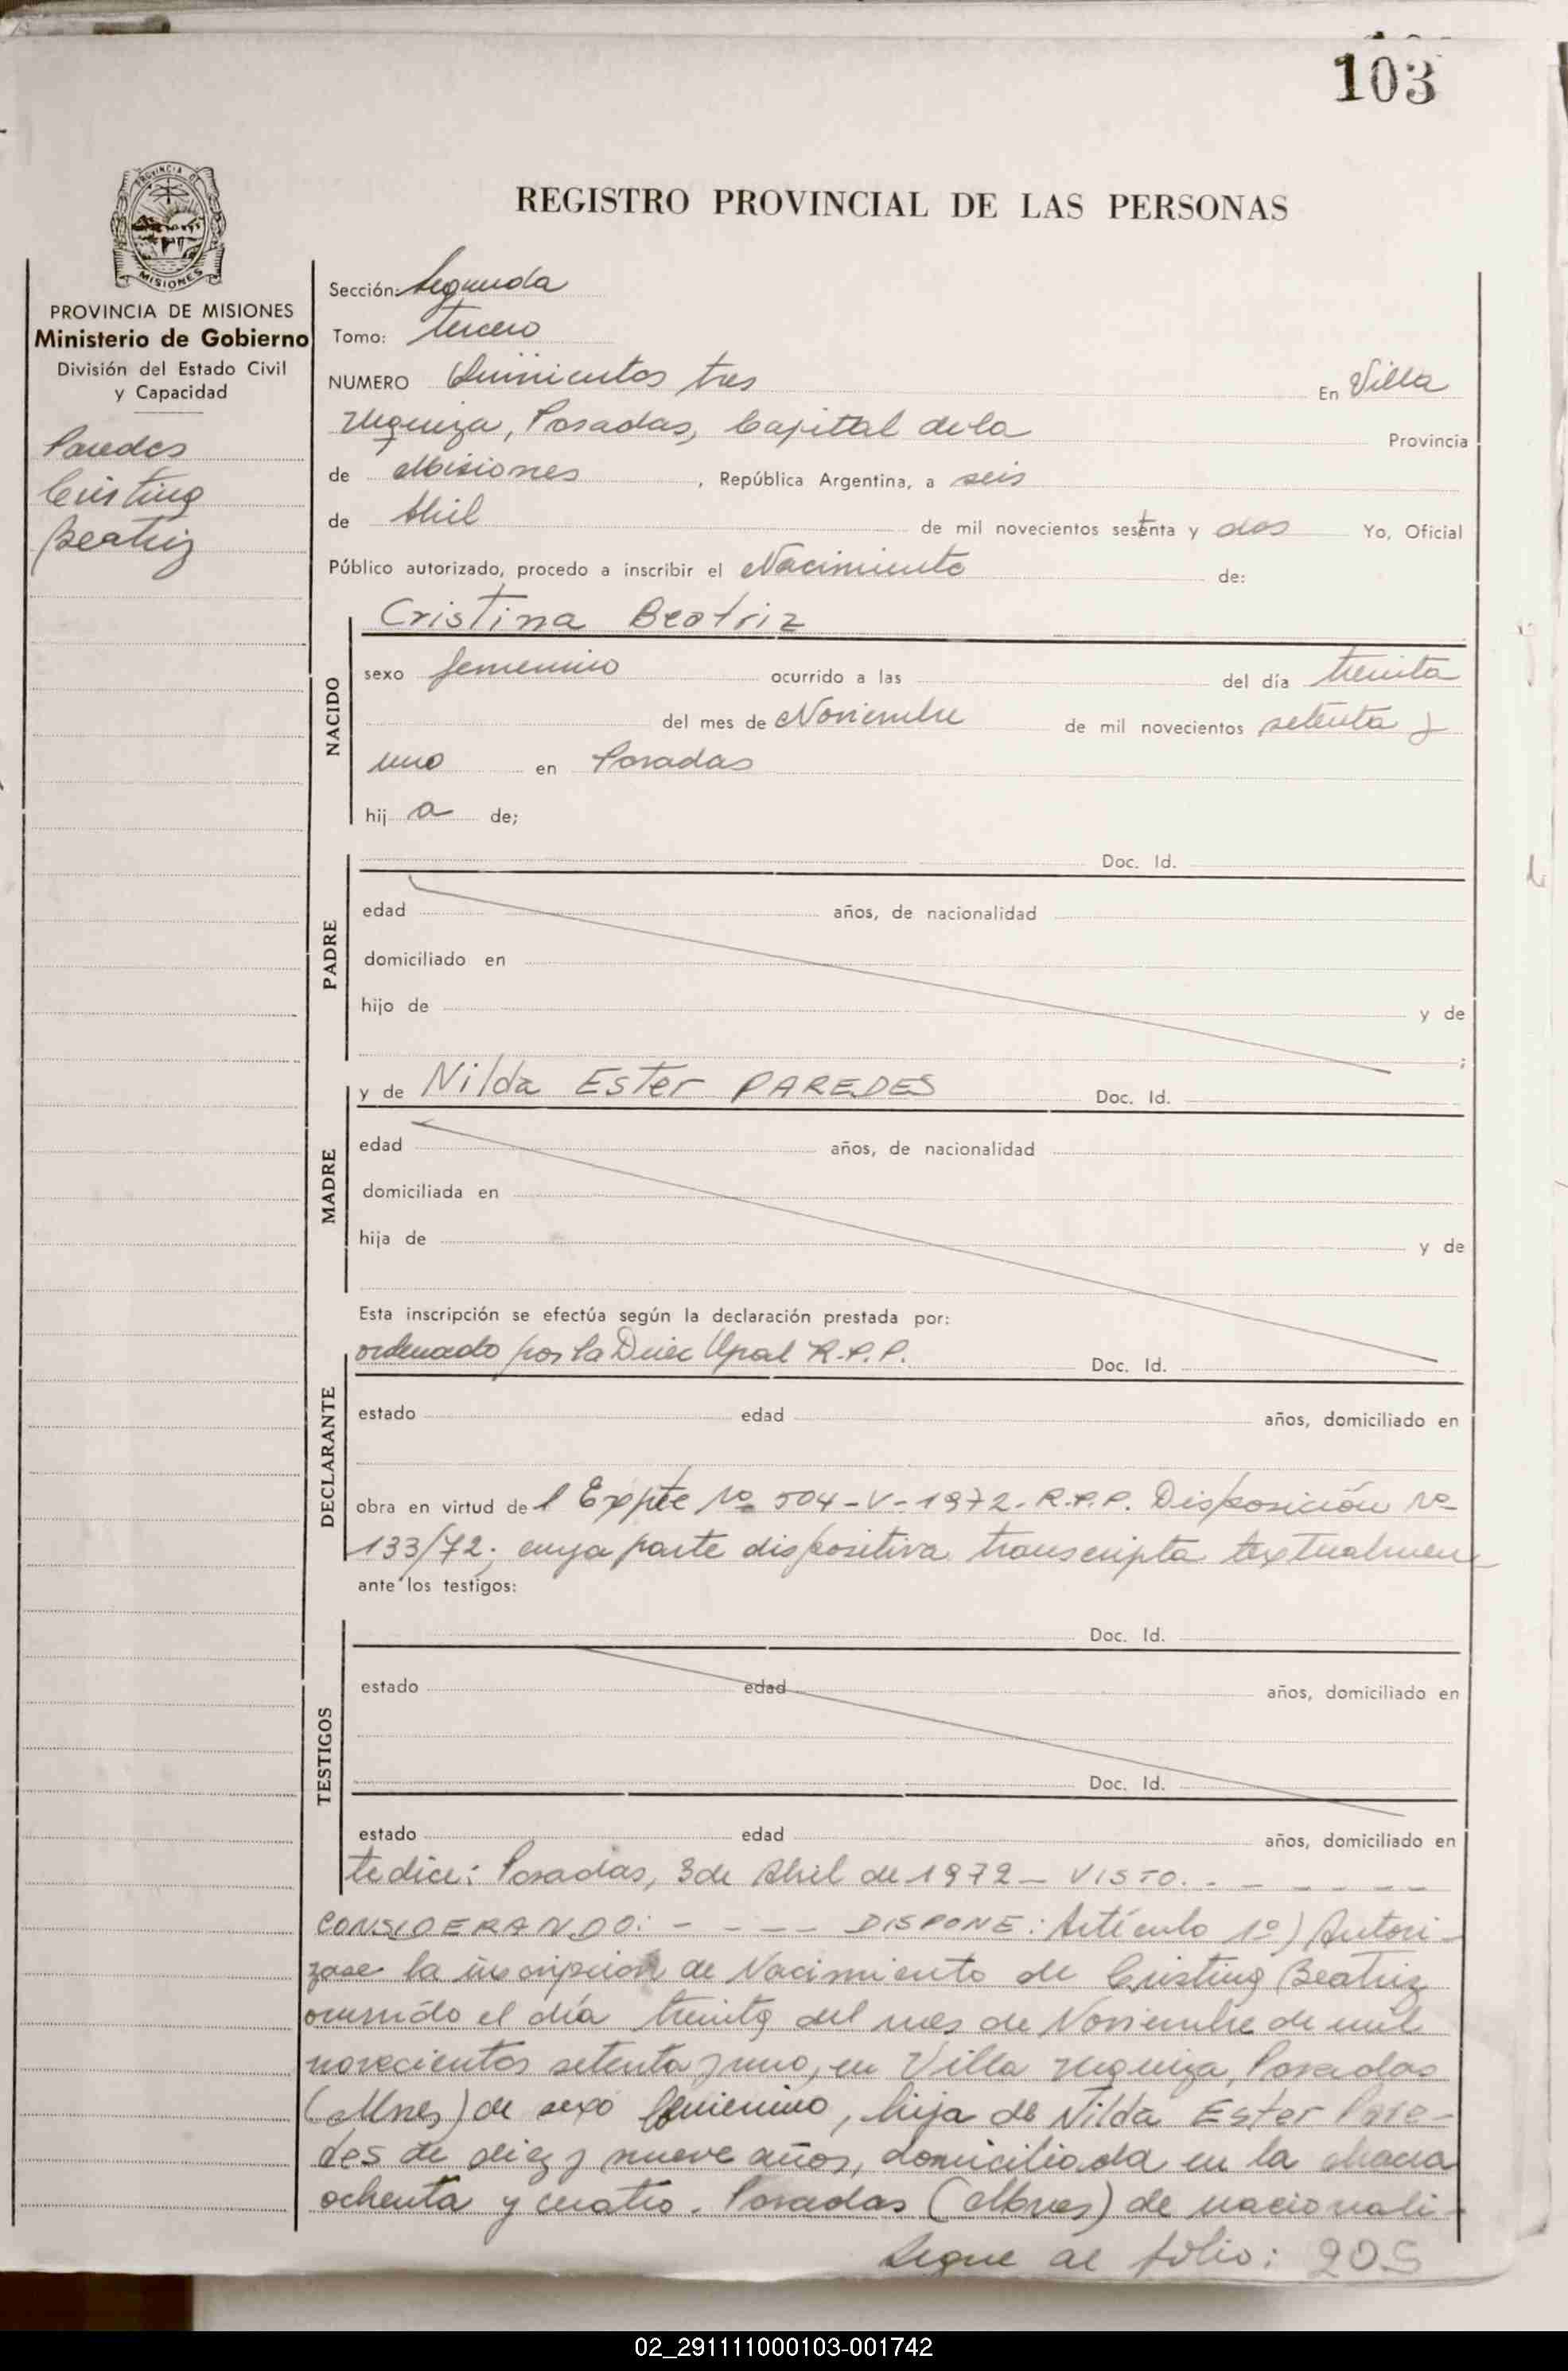 103
PROVINCIA DE
MISIONES
REGISTRO PROVINCIAL DE LAS PERSONAS
PROVINCIA DE MISIONES
Ministerio de Gobierno
División del Estado Civil
y Capacidad
Paredes
Cristina
Beatriz
Sección: Segunda
Tomo: tercero
NUMERO Quinientos tres En Villa
Urquiza, Posadas, Capital de la Provincia
de Misiones, República Argentina, a seis
de Abril de mil novecientos setenta y dos Yo, Oficial
Público autorizado, procedo a inscribir el Nacimiento de:
NACIDO
Cristina Beatriz
sexo femenino ocurrido a las del día treinta
del mes de Noviembre de mil novecientos setenta y
uno en Posadas
hij a de;
PADRE
Doc. Id.
edad años, de nacionalidad
domiciliado en
hijo de y de
;
MADRE
y de Nilda Ester PAREDES Doc. Id.
edad años, de nacionalidad
domiciliada en
hija de y de
Esta inscripción se efectúa según la declaración prestada por:
DECLARANTE
ordenado por la Direc R.P.P. Doc. Id.
estado edad años, domiciliado en
obra en virtud de l Expte Nº 504-V-1972-R.P.P. Disposición Nº
133/72; cuya parte dispositiva transcripta textualmen
ante los testigos:
TESTIGOS
Doc. Id.
estado edad años, domiciliado en
Doc. Id.
estado edad años, domiciliado en
te dice: Posadas, 3 de Abril de 1972 - VISTO. - - - - - -
CONSIDERANDO: - - - - DISPONE: Artículo 1º) Autori-
zase la inscripción de Nacimiento de Cristina Beatriz
ocurrido el día treinta del mes de Noviembre de mil
novecientos setenta y uno, en Villa Urquiza, Posadas
(Mnes) de sexo femenino, hija de Nilda Ester Pare-
des de diez y nueve años, domiciliada en la chacra
ochenta y cuatro. Posadas (Mnes) de nacionali-
Segue al folio: 205
02_291111000103-001742